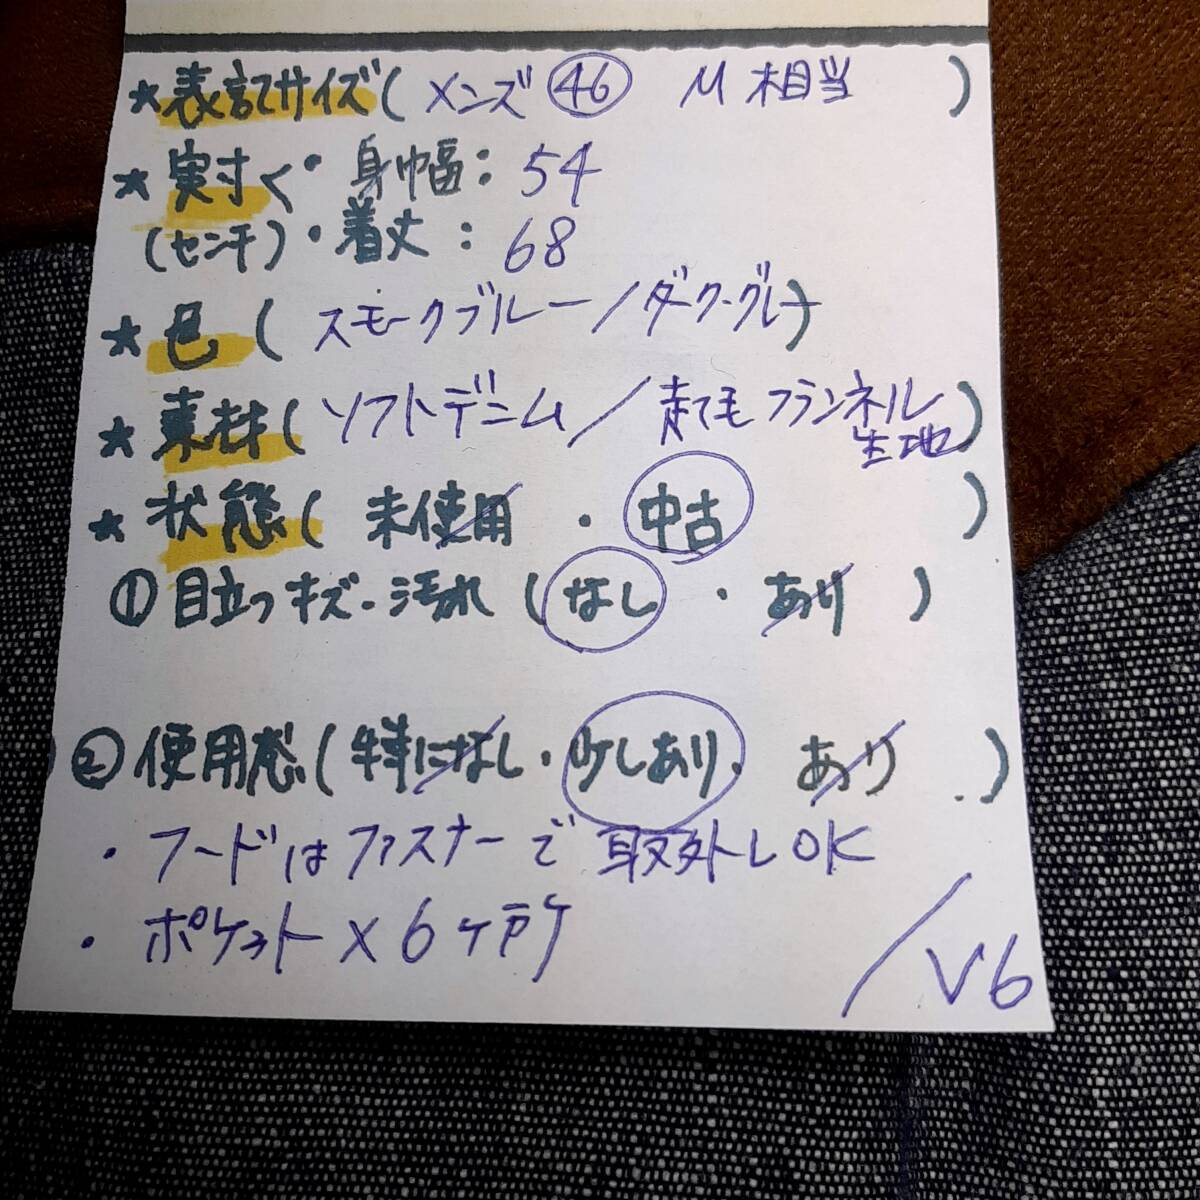 ★表記サイズ( メンズ ㊻ M相当 )
★実寸く・身幅: 54
(センチ)・着丈: 68
★色( スモークブルー/ダークグレー)
★素材( ソフトデニム/ フランネル生地)
★状態( 未使用 ・ 中古 )
①目立つキズ・汚れ ( なし ・ あり )
②使用感( 特になし・少しあり・ あり )
・フードはファスナーで取外しOK
・ポケット×6ヶ所
/V6